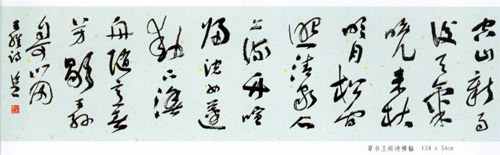 空山新雨
後天氣
晚來秋
明月松間
照清泉石
上流竹喧
歸浣女蓮
動下漁
舟隨意春
芳歇王孫
自可留
王維詩
草书王维诗横幅 154 × 54cm